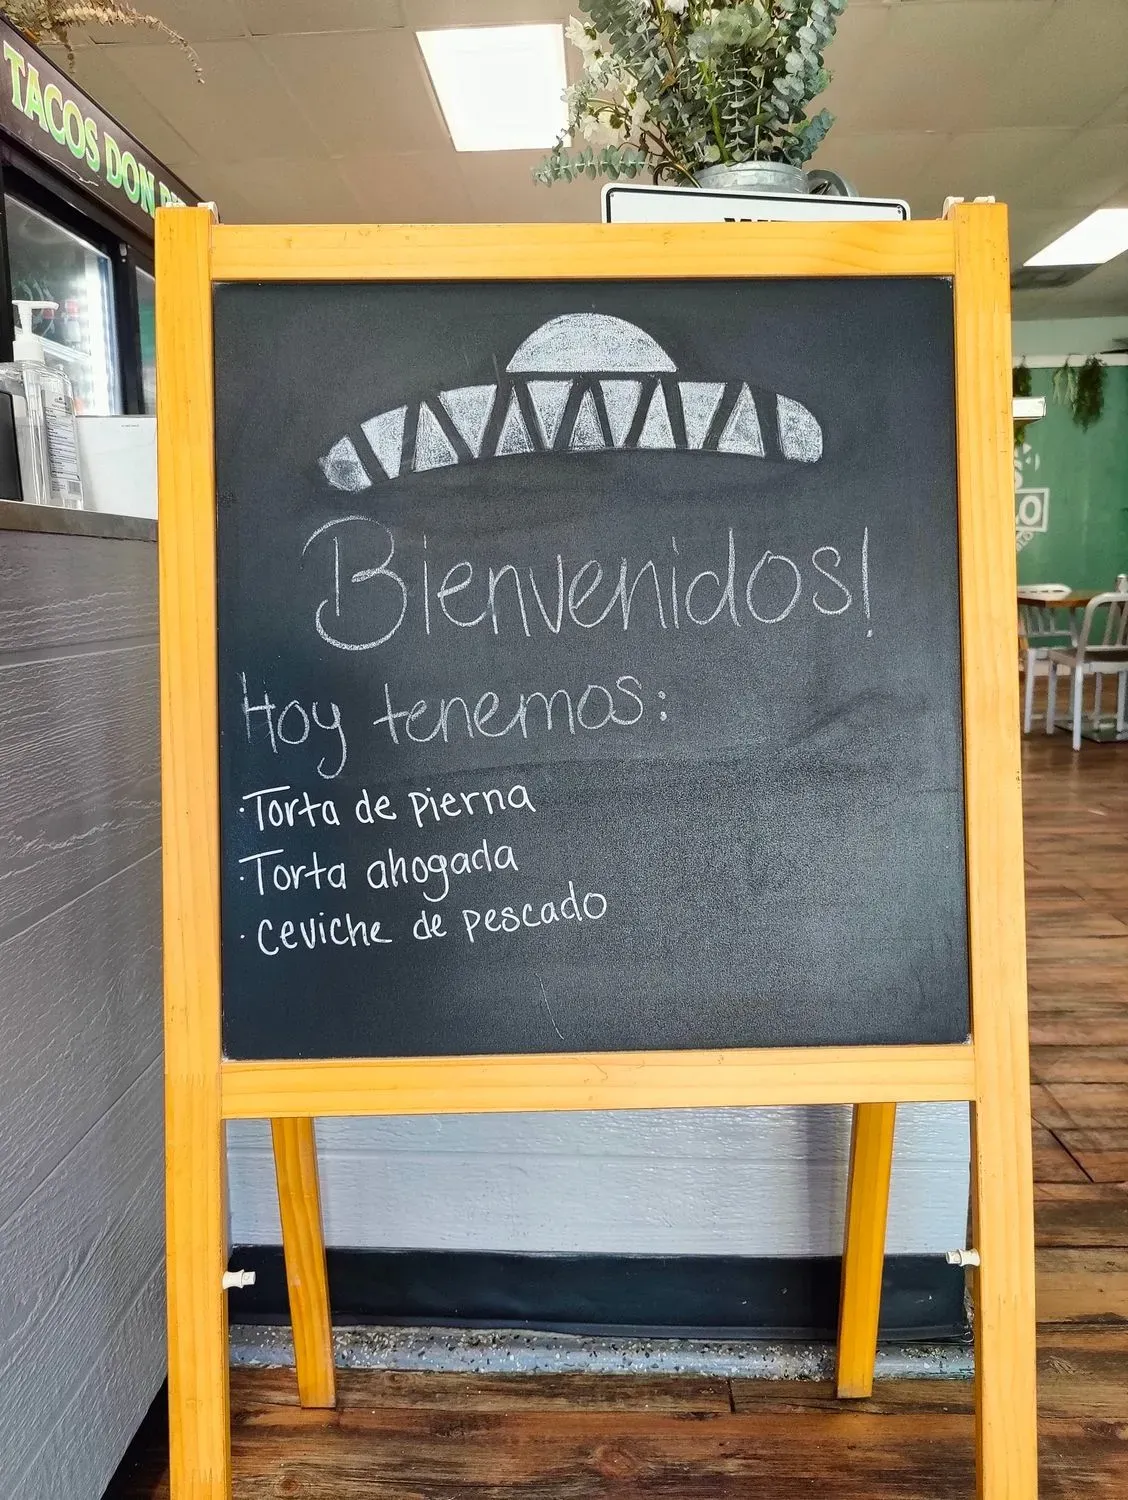 TACOS DON
Bienvenidos!
Hoy tenemos:
·Torta de pierna
·Torta ahogada
·Ceviche de pescado